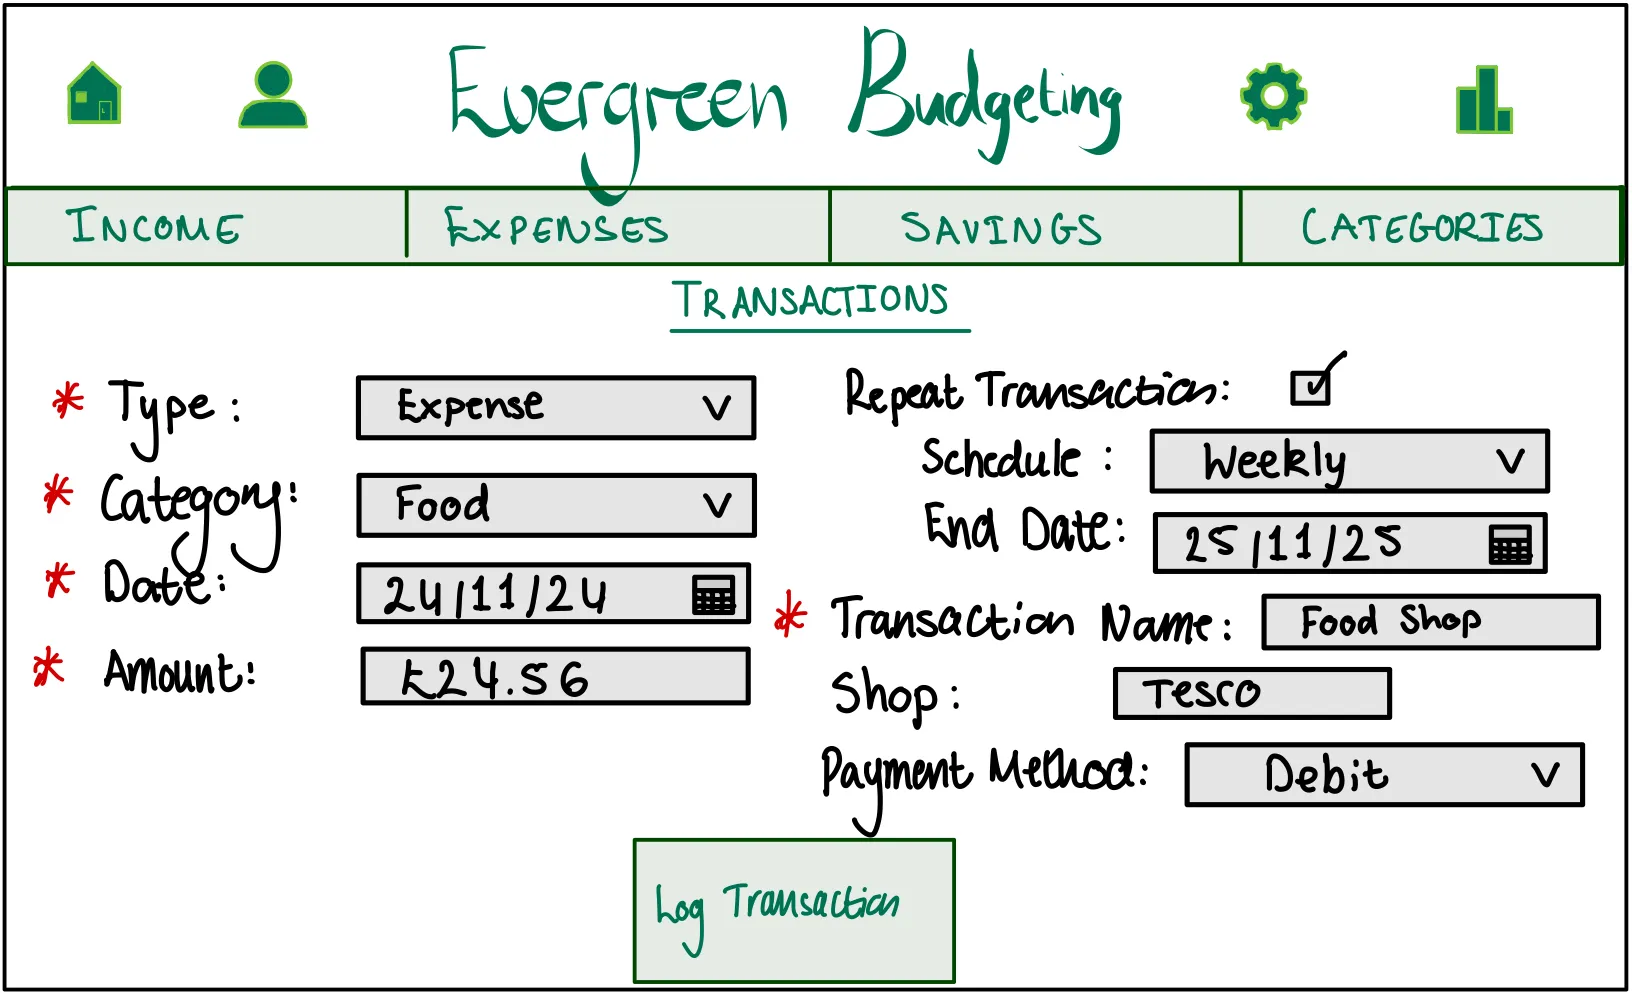 Evergreen Budgeting
INCOME EXPENSES SAVINGS CATEGORIES
TRANSACTIONS
* Type: Expense V
* Category: Food V
* Date: 24/11/24
* Amount: £24.56
Repeat Transaction:
Schedule: Weekly V
End Date: 25/11/25
* Transaction Name: Food Shop
Shop: Tesco
Payment Method: Debit V
Log Transaction